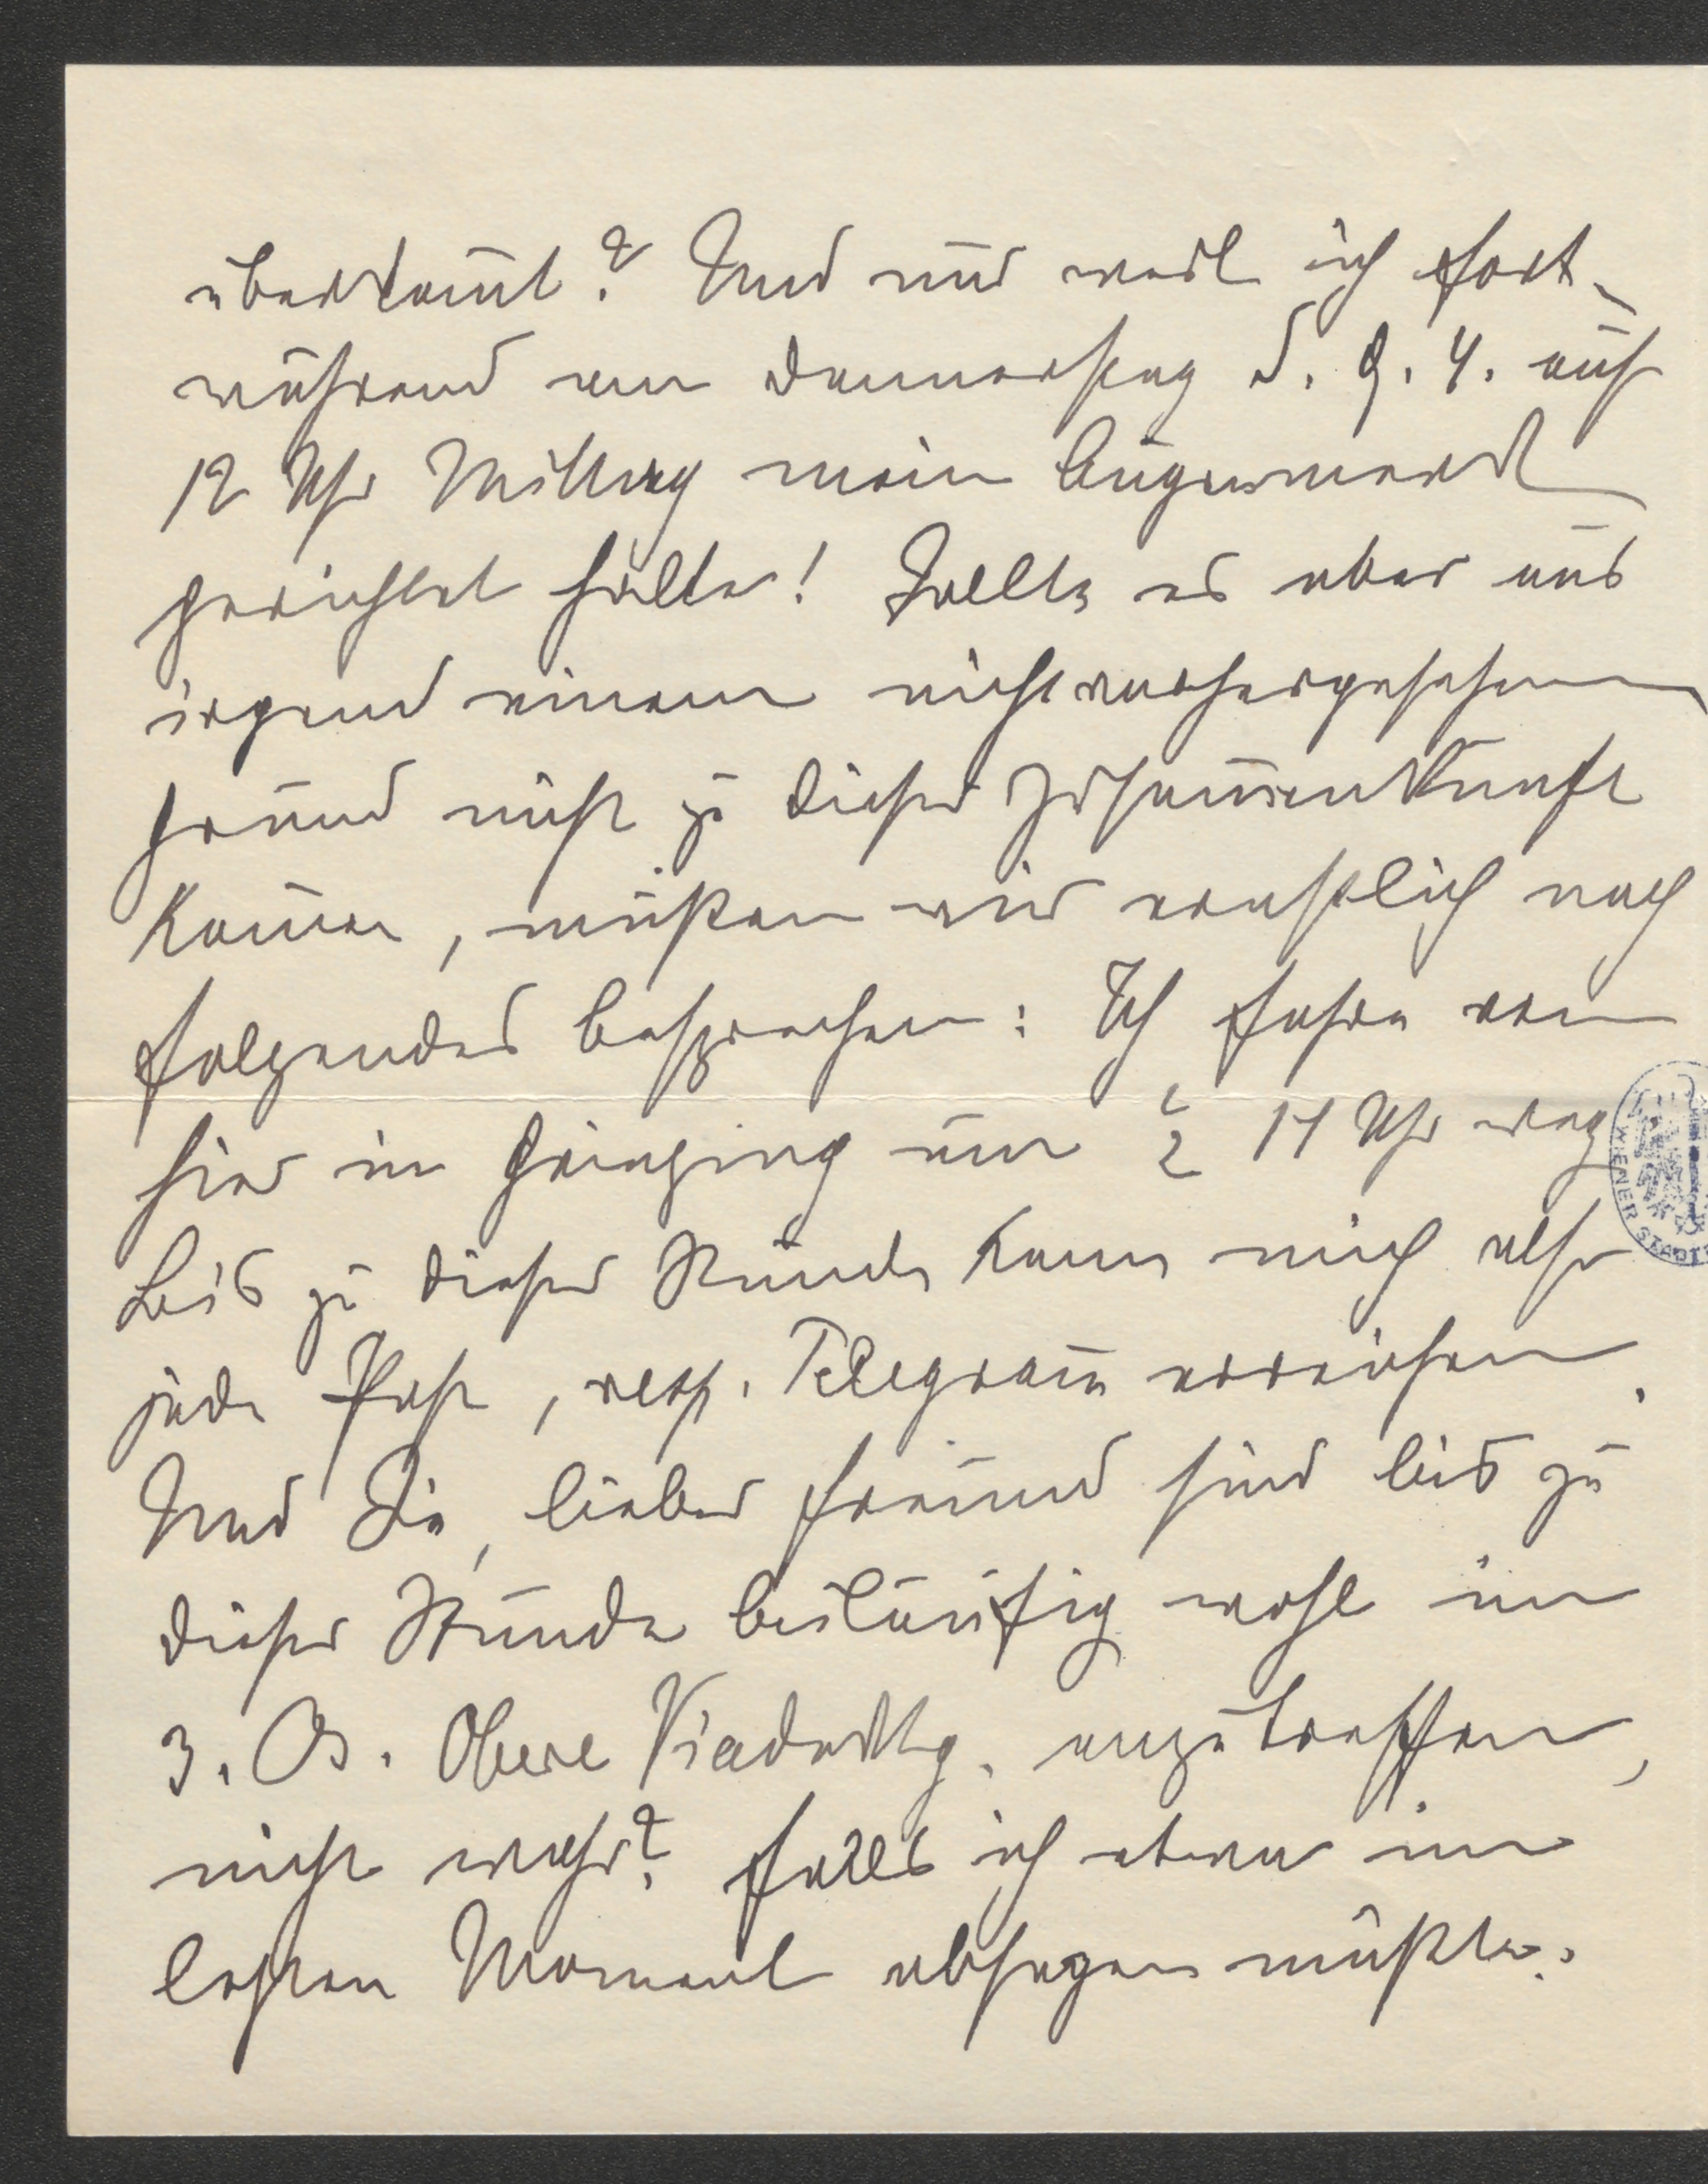 überkom̄t? Und nur weil ich fort-
während am Donnerstag d. 9. 4. auf
12 Uhr Mittag mein Augenmerk
gerichtet halte! Sollte es aber aus
irgend einem nichtvorhergesehenen
Grund nicht zu dieser Zusam̄enkunft
kom̄en, müßen wir ernstlich noch
folgendes besprechen: Ich fahre von
hier in Grinzing um ½ 11 Uhr weg
Bis zu dieser Stunde kann mich also
jede Post, resp. Telegram̄ erreichen.
Und Sie, lieber Freund sind bis zu
dieser Stunde beiläufig wohl im
3. Bz. Obere Viaduktg. anzutreffen,
nicht wahr? Falls ich etwa im
letzten Moment absagen müßte.
WIENER STADT